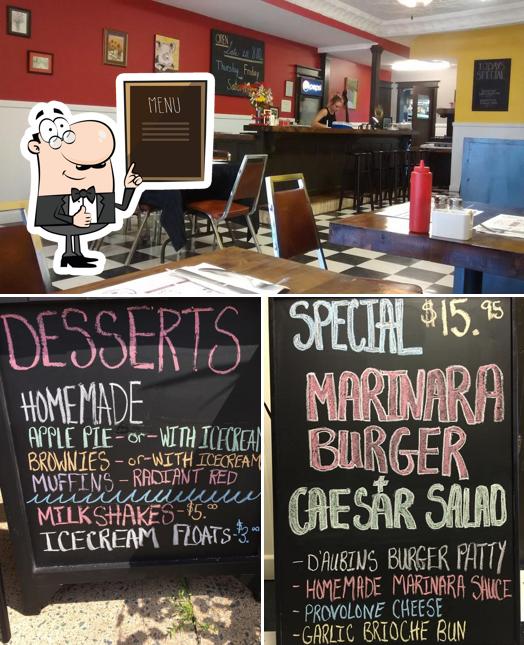 OPEN
Thursday, Friday
pepsi
TODAYS
SPECIAL
MENU
DESSERTS
HOMEMADE
APPLE PIE - or - WITH ICECREAM
BROWNIES - or - WITH ICECREAM
MUFFINS - RADIANT RED
MILKSHAKES - $5.00
ICECREAM FLOATS - $3.00
SPECIAL $15.95
MARINARA
BURGER
+
CAESAR SALAD
- D'AUBINS BURGER PATTY
- HOMEMADE MARINARA SAUCE
- PROVOLONE CHEESE
- GARLIC BRIOCHE BUN